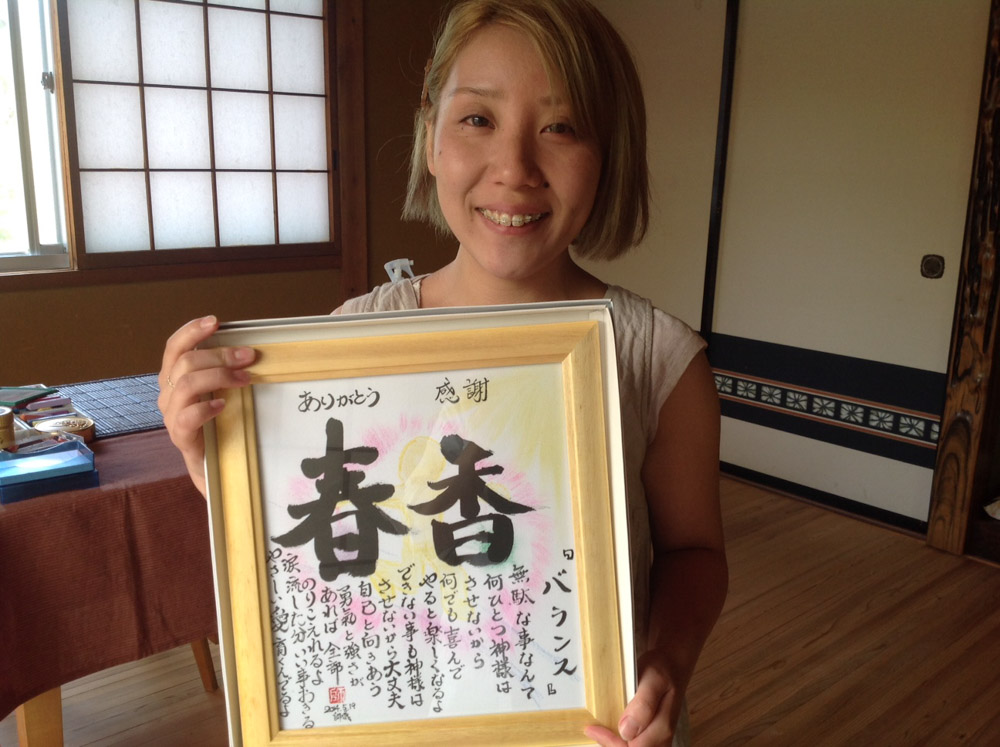 ありがとう 感謝
春香
『バランス』
無駄な事なんて
何ひとつ神様は
させないから
何でも喜んで
やると楽しくなるよ
できない事も神様は
させないから大丈夫
自己と向きあう
勇氣と強さが
あれば全部
のりこえれるよ
涙流した分いい事おきる
やさしい愛育くんでるよ
2014.5.19